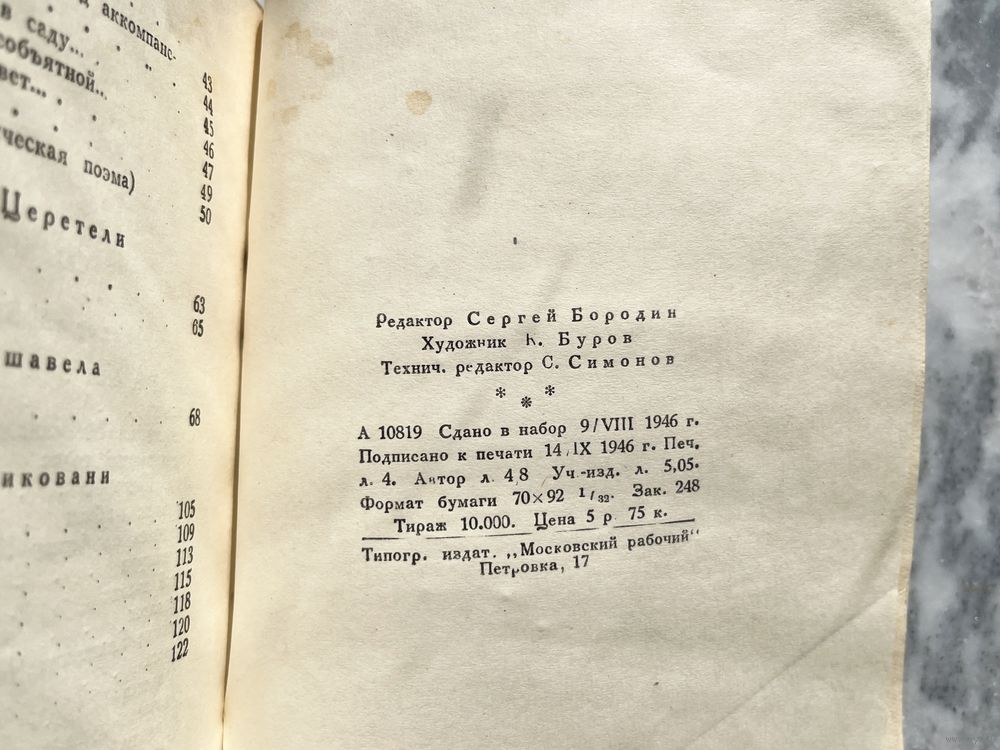 аккомпане-
в саду...
43
44
45
46
47
ческая поэма)
49
50
Церетели
63
65
шавела
68
иковани
105
109
113
115
118
120
122
Редактор Сергей Бородин
Художник К. Буров
Технич. редактор С. Симонов
* * *
А 10819 Сдано в набор 9/VIII 1946 г.
Подписано к печати 14/IX 1946 г. Печ.
л. 4. Автор л. 4,8 Уч.-изд. л. 5,05.
Формат бумаги 70×92 1/32. Зак. 248
Тираж 10.000. Цена 5 р. 75 к.
Типогр. издат. „Московский рабочий“
Петровка, 17